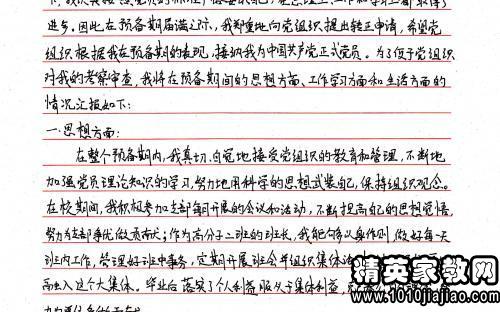 进步。因此在预备期届满之际，我郑重地向党组织提出转正申请，希望党
组织根据我在预备期的表现，接纳我为中国共产党正式党员。为了便于党组织
对我的考察审查，我将在预备期间的思想方面、工作学习方面和生活方面的
情况汇报如下：
一.思想方面：
在整个预备期内，我真切、自觉地接受党组织的教育和管理，不断地
加强党员理论知识的学习，努力地用科学的思想武装自己，保持组织观念。
在校期间，我积极参加支部每月开展的会议和活动，不断提高自己的思想觉悟，
努力为支部事业做贡献；作为高分子二班的班长，我能够以身作则做好每一天
班内工作，管理好班中事务，定期开展班会并组织集体活
而融入这个大集体。毕业后落实了个人利益服从于集体利益，
精英家教网
www.1010jiajiao.com